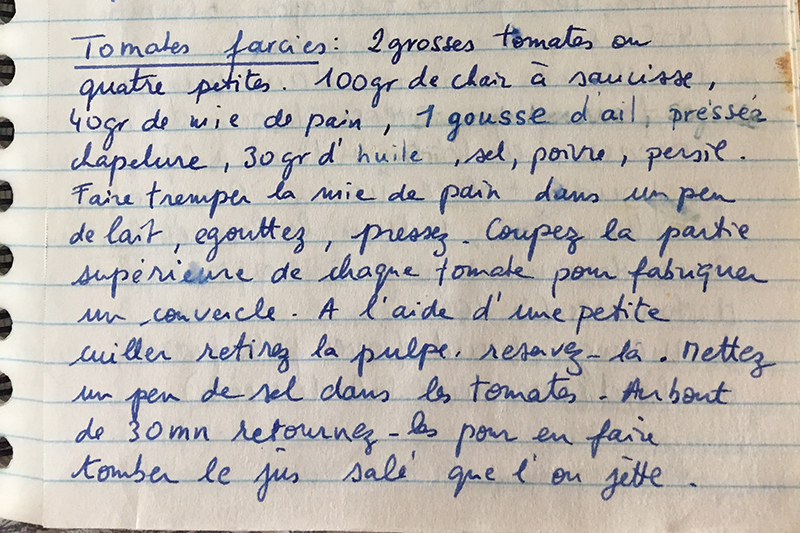 Tomates farcies : 2 grosses tomates ou
quatre petites. 100gr de chair à saucisse,
40gr de mie de pain, 1 gousse d'ail, pressée
chapelure, 30gr d'huile, sel, poivre, persil.
Faire tremper la mie de pain dans un peu
de lait, egouttez, pressez. Coupez la partie
supérieure de chaque tomate pour fabriquer
un couvercle. A l'aide d'une petite
cuiller retirez la pulpe. reservez-la. Mettez
un peu de sel dans les tomates - Au bout
de 30mn retournez-les pour en faire
tomber le jus salé que l'on jette.